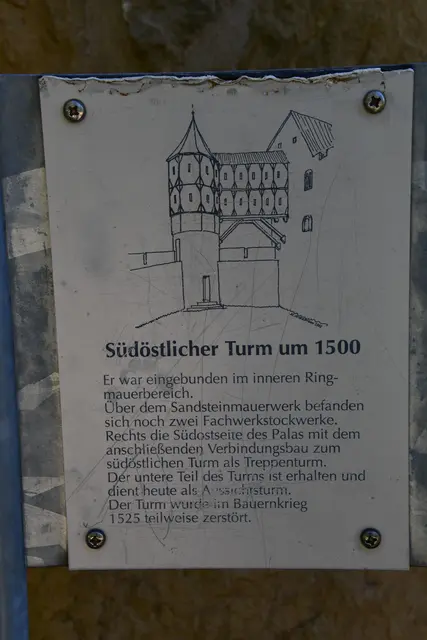 Südöstlicher Turm um 1500
Er war eingebunden im inneren Ring-
mauerbereich.
Über dem Sandsteinmauerwerk befanden
sich noch zwei Fachwerkstockwerke.
Rechts die Südostseite des Palas mit dem
anschließenden Verbindungsbau zum
südöstlichen Turm als Treppenturm.
Der untere Teil des Turms ist erhalten und
dient heute als Aussichtsturm.
Der Turm wurde im Bauernkrieg
1525 teilweise zerstört.